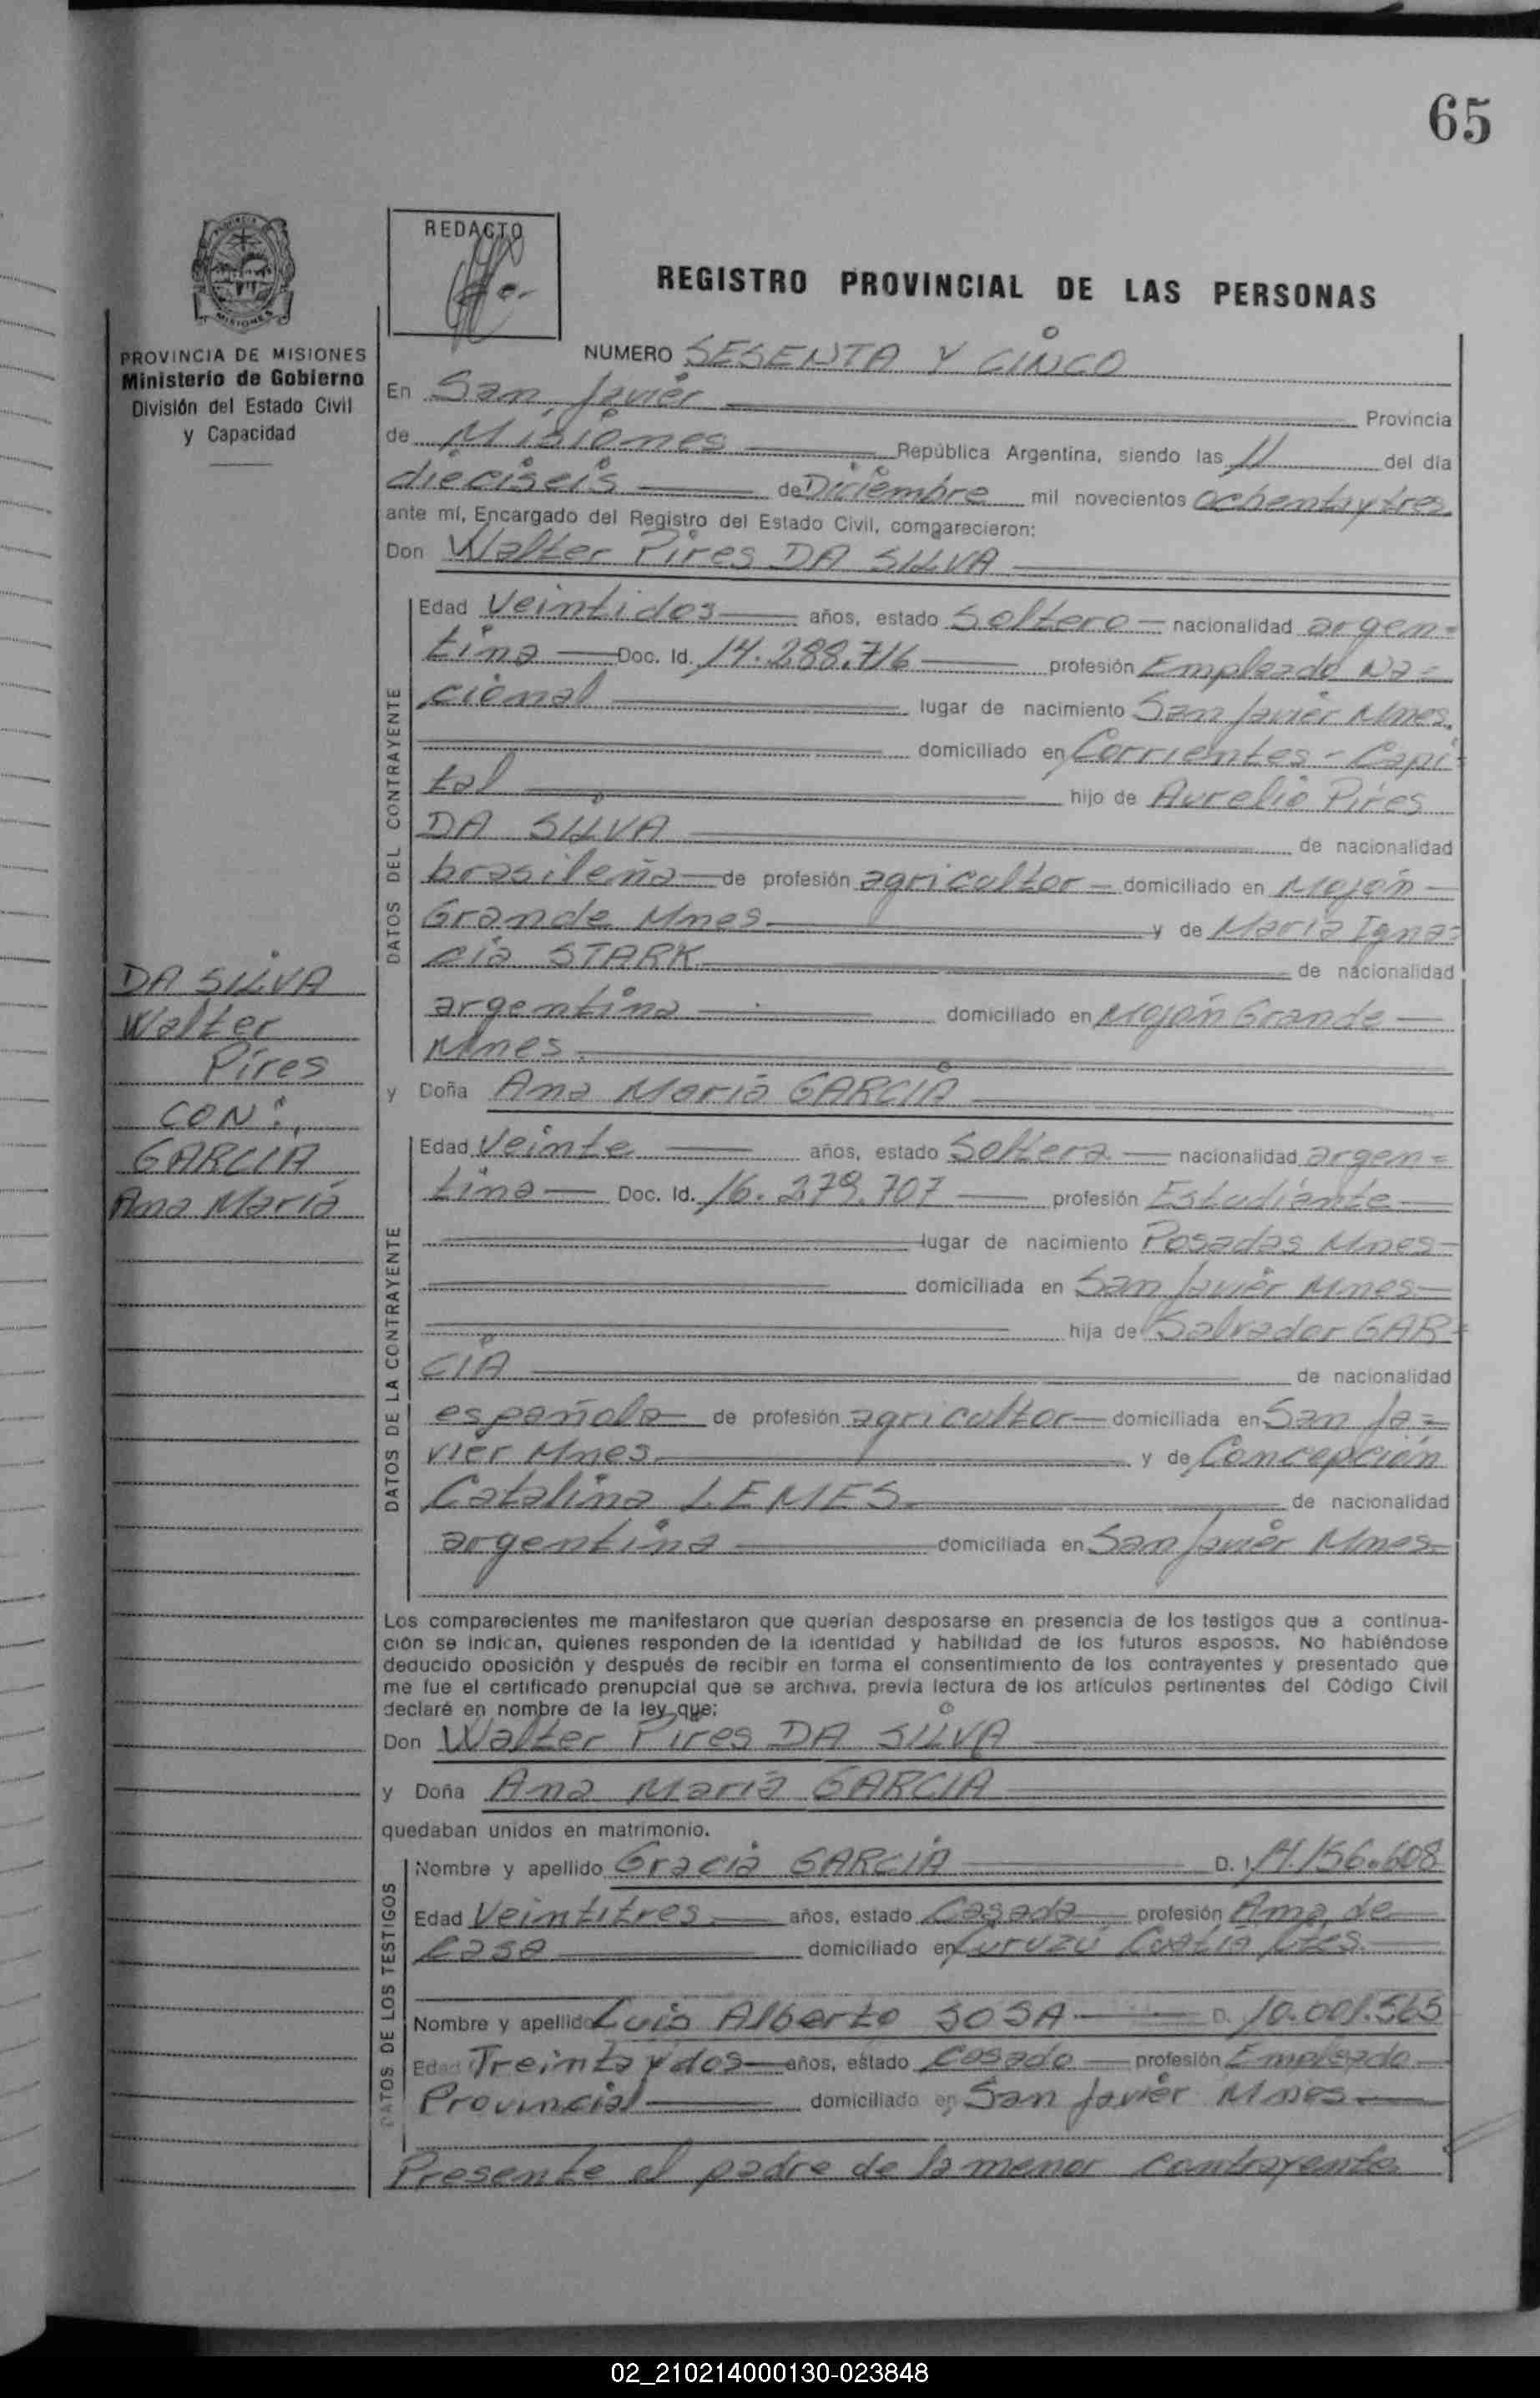 65
REDACTO
REGISTRO PROVINCIAL DE LAS PERSONAS
PROVINCIA DE MISIONES
Ministerio de Gobierno
División del Estado Civil
y Capacidad
NUMERO SESENTA Y CINCO
En San Javier Provincia
de Misiones República Argentina, siendo las 11 del día
dieciseis de Diciembre mil novecientos ochentaytres
ante mí, Encargado del Registro del Estado Civil, comparecieron:
Don Walter Pires DA SILVA
DATOS DEL CONTRAYENTE
Edad Veintidos años, estado Soltero nacionalidad argen=
tina Doc. Id. 14.288.716 profesión Empleado Na=
cional lugar de nacimiento San Javier Mnes.
domiciliado en Corrientes - Capi=
tal hijo de Aurelio Pires
DA SILVA de nacionalidad
brasileña de profesión agricultor domiciliado en Mojón
Grande Mnes. y de María Igna=
cia STARK de nacionalidad
argentina domiciliado en Mojón Grande
Mnes.
DA SILVA
Walter
Pires
CON:
GARCIA
Ana María
y Doña Ana María GARCIA
DATOS DE LA CONTRAYENTE
Edad Veinte años, estado Soltera nacionalidad argen=
tina Doc. Id. 16.279.707 profesión Estudiante
lugar de nacimiento Posadas Mnes
domiciliada en San Javier Mnes
hija de Salvador GAR=
CIA de nacionalidad
española de profesión agricultor domiciliada en San Ja=
vier Mnes. y de Concepción
Catalina LEMES de nacionalidad
argentina domiciliada en San Javier Mnes
Los comparecientes me manifestaron que querían desposarse en presencia de los testigos que a continua-
ción se indican, quienes responden de la identidad y habilidad de los futuros esposos. No habiéndose
deducido oposición y después de recibir en forma el consentimiento de los contrayentes y presentado que
me fue el certificado prenupcial que se archiva, previa lectura de los artículos pertinentes del Código Civil
declaré en nombre de la ley que:
Don Walter Pires DA SILVA
y Doña Ana María GARCIA
quedaban unidos en matrimonio.
DATOS DE LOS TESTIGOS
Nombre y apellido Gracia GARCIA D. I. 14.156.608
Edad Veintitres años, estado Casada profesión Ama de
casa domiciliado en Curuzú Cuatia Ctes.
Nombre y apellido Luis Alberto SOSA D. 10.001.565
Edad Treinta y dos años, estado Casado profesión Empleado
Provincial domiciliado en San Javier Mnes
Presente el padre de la menor contrayente
02_210214000130-023848